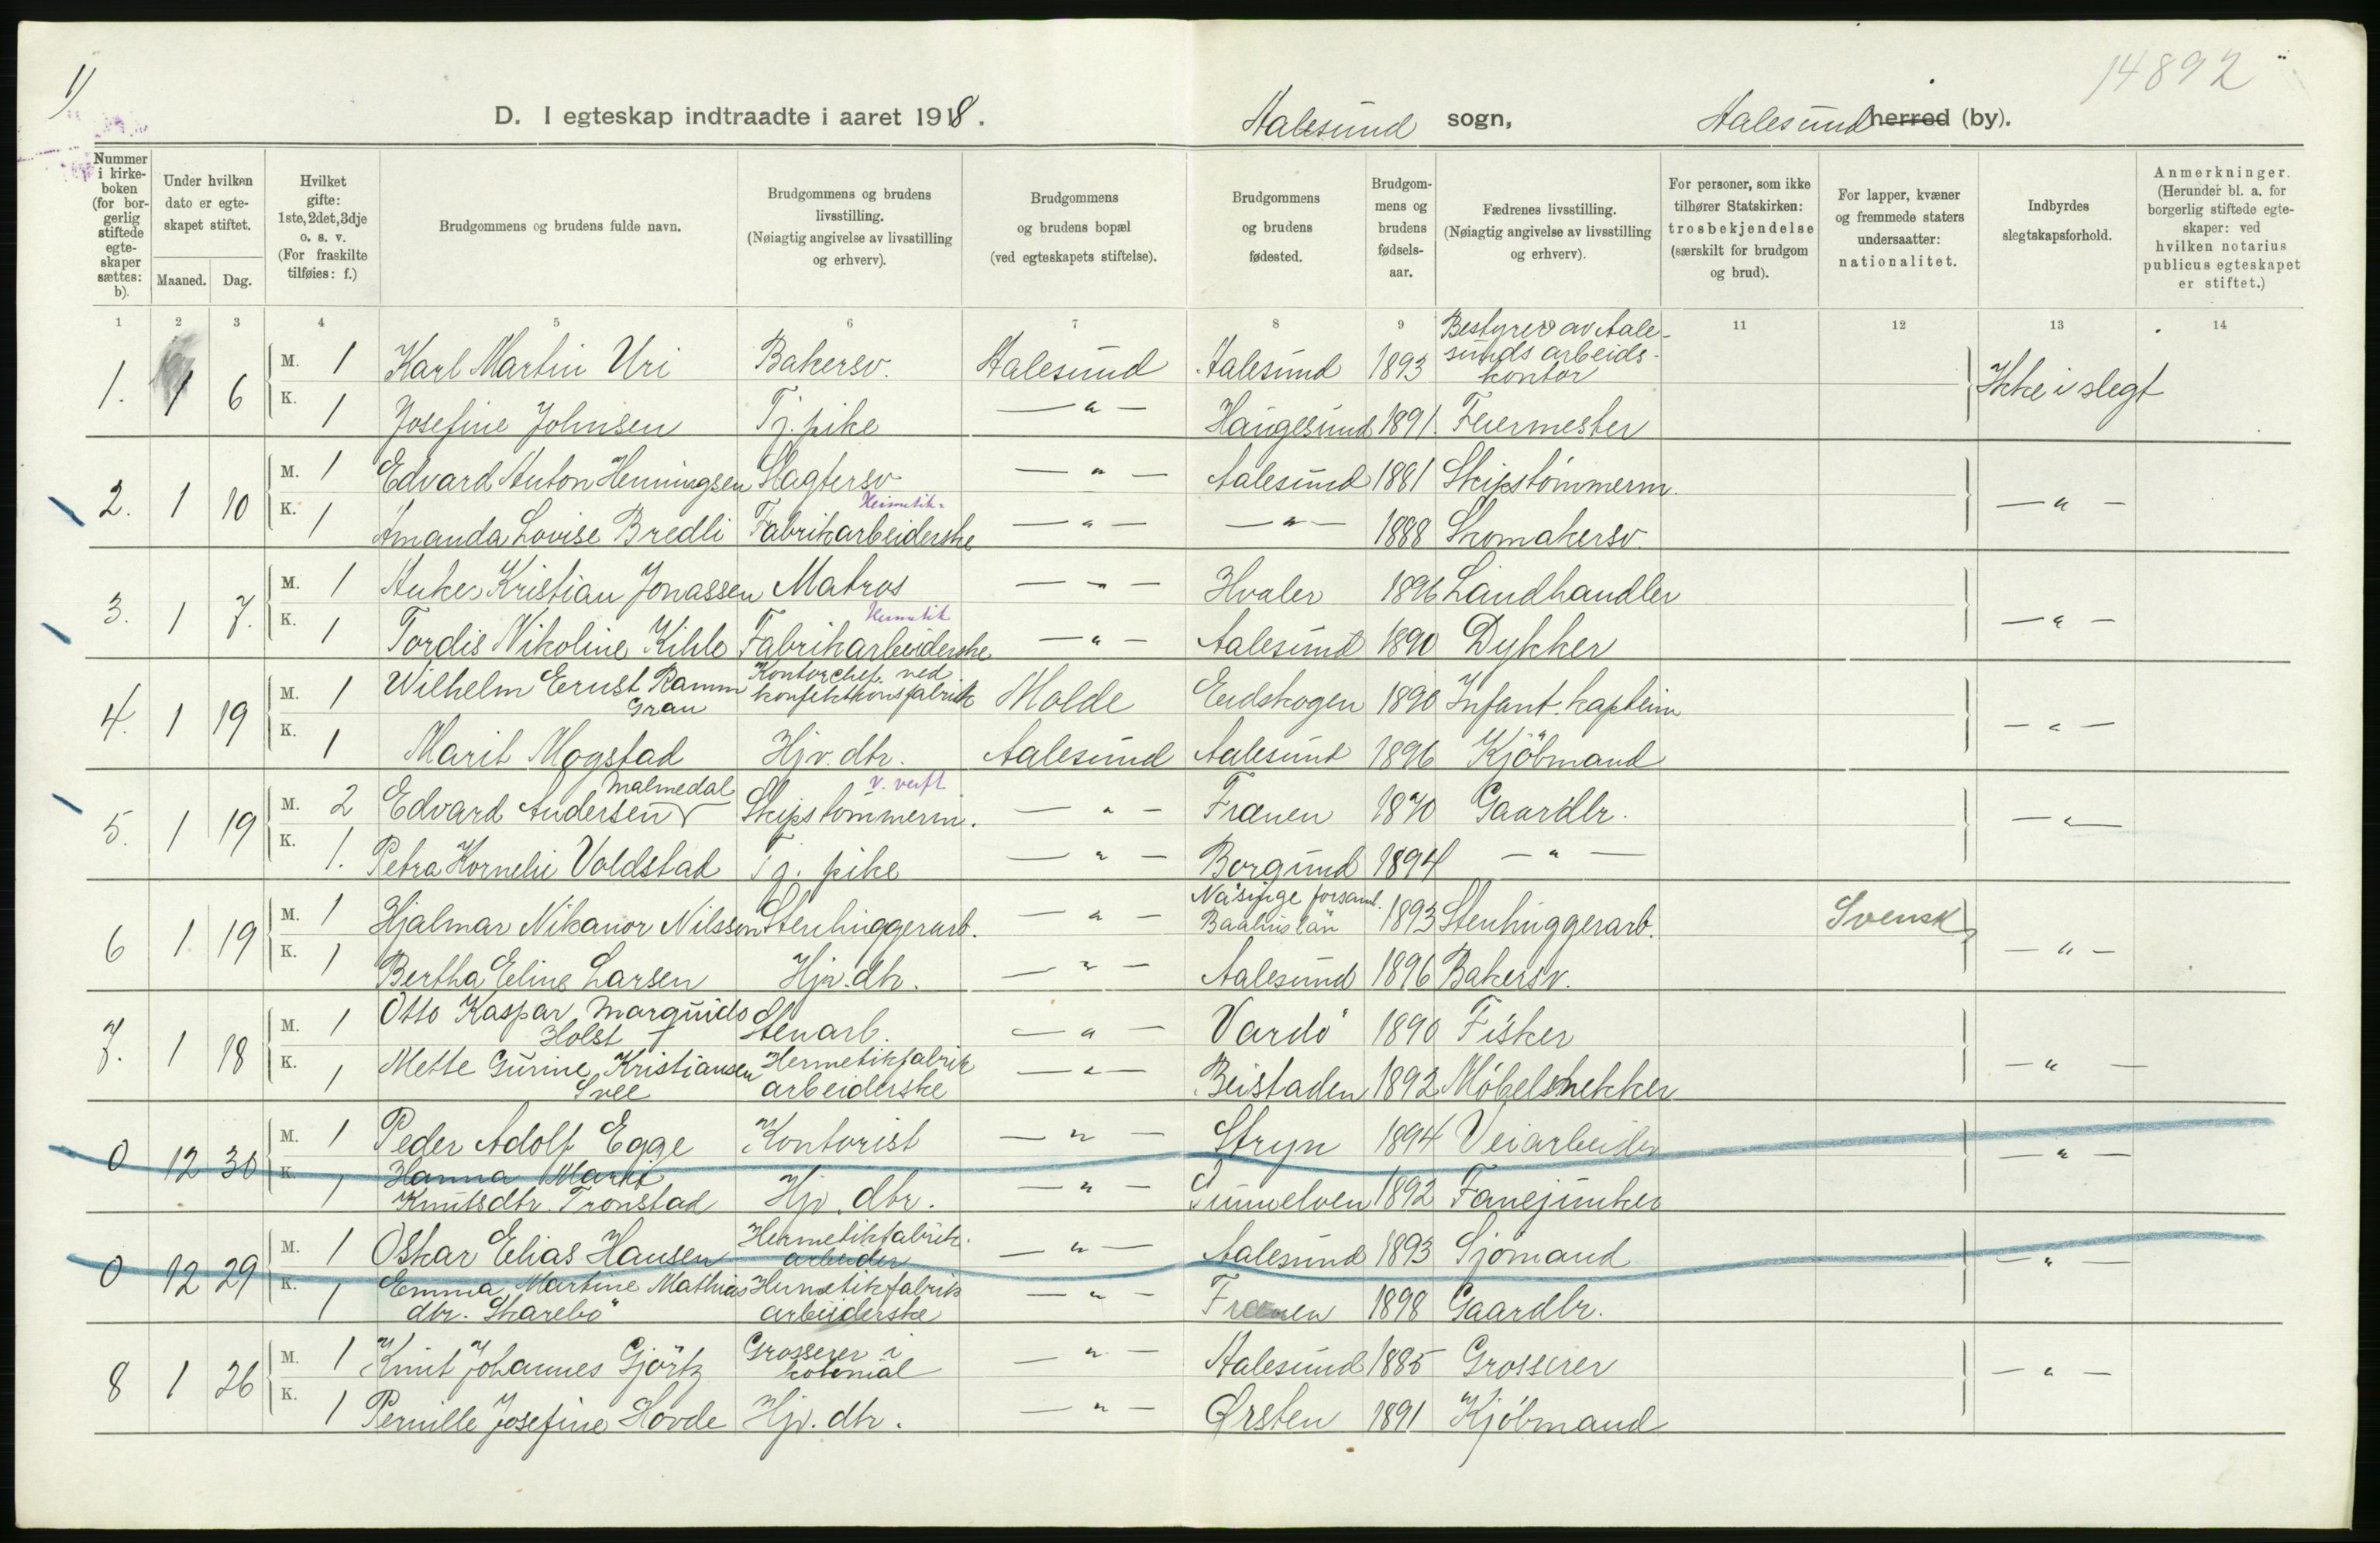 1)
14892
D. I egteskap indtraadte i aaret 1918. Aalesund sogn, Aalesund herred (by).
Nummer i kirkeboken (for borgerlig stiftede egteskaper sættes: b).
Under hvilken dato er egteskapet stiftet.
Maaned. Dag.
Hvilket gifte: 1ste, 2det, 3dje o. s. v. (For fraskilte tilføies: f.)
Brudgommens og brudens fulde navn.
Brudgommens og brudens livsstilling. (Nøiagtig angivelse av livsstilling og erhverv).
Brudgommens og brudens bopæl (ved egteskapets stiftelse).
Brudgommens og brudens fødested.
Brudgommens og brudens fødselsaar.
Fædrenes livsstilling. (Nøiagtig angivelse av livsstilling og erhverv).
For personer, som ikke tilhører Statskirken: trosbekjendelse (særskilt for brudgom og brud).
For lapper, kvæner og fremmede staters undersaatter: nationalitet.
Indbyrdes slegtskapsforhold.
Anmerkninger. (Herunder bl. a. for borgerlig stiftede egteskaper: ved hvilken notarius publicus egteskapet er stiftet.)
1 2 3 4 5 6 7 8 9 10 11 12 13 14
1. 1 6 M. 1 Karl Martin Uri Bakersv. Aalesund Aalesund 1893 Bestyrer av Aalesunds arbeidskontor Ikke i slegt
K. 1 Josefine Johnsen Tj. pike — " — Haugesund 1891 Feiermester
2. 1 10 M. 1 Edvard Anton Henningsen Slagtersv. — " — Aalesund 1881 Skipstömmerm. — " —
K. 1 Amanda Lovise Bredli Hermetik- Fabrikarbeiderske — " — — " — 1888 Skomakersv.
3. 1 7. M. 1 Anker Kristian Jonassen Matros — " — Hvaler 1896 Landhandler — " —
K. 1 Tordis Nikoline Kihle Hermetik Fabrikarbeiderske — " — Aalesund 1890 Dykker
4. 1 19 M. 1 Wilhelm Ernst Ramm Grau Kontorchef ved konfektionsfabrik Molde Eidskogen 1890 Infant. kaptein — " —
K. 1 Marit Mogstad Hjv. dtr. Aalesund Aalesund 1896 Kjöbmand
5. 1 19 M. 2 Edvard Andersen Malmedal Skipstömmerm. v. verft — " — Frænen 1870 Gaardbr. — " —
K. 1. Petra Kornelie Voldstad Tj. pike — " — Borgund 1894 — " —
6 1 19 M. 1 Hjalmar Nikanor Nilsson Stenhuggerarb. — " — Näsinge forsaml. Baahuslän 1893 Stenhuggerarb. Svensk — " —
K. 1 Bertha Eline Larsen Hjv. dtr. — " — Aalesund 1896 Bakersv.
7. 1 18 M. 1 Otto Kaspar Marquids Holst Stenarb. — " — Vardö 1890 Fisker — " —
K. 1 Mette Gurine Kristiansen Svee Hermetikfabrik arbeiderske — " — Beistaden 1892 Möbelsnekker
0 12 30 M. 1 Peder Adolf Egge Kontorist — " — Stryn 1894 Veiarbeider — " —
K. 1 Hanna Marki Knutsdtr. Tronstad Hjv. dtr. — " — Sunnelven 1892 Fanejunker
0 12 29 M. 1 Oskar Elias Hansen Hermetikfabrik. arbeider — " — Aalesund 1893 Sjömand — " —
K. 1 Emma Martine Mathiasdtr. Skarebö Hermetikfabrik arbeiderske — " — Frænen 1898 Gaardbr.
8 1 26 M. 1 Knut Johannes Gjörtz Grosserer i kolonial — " — Aalesund 1885 Grosserer — " —
K. 1 Pernille Josefine Hovde Hjv. dtr. — " — Ørsten 1891 Kjöbmand